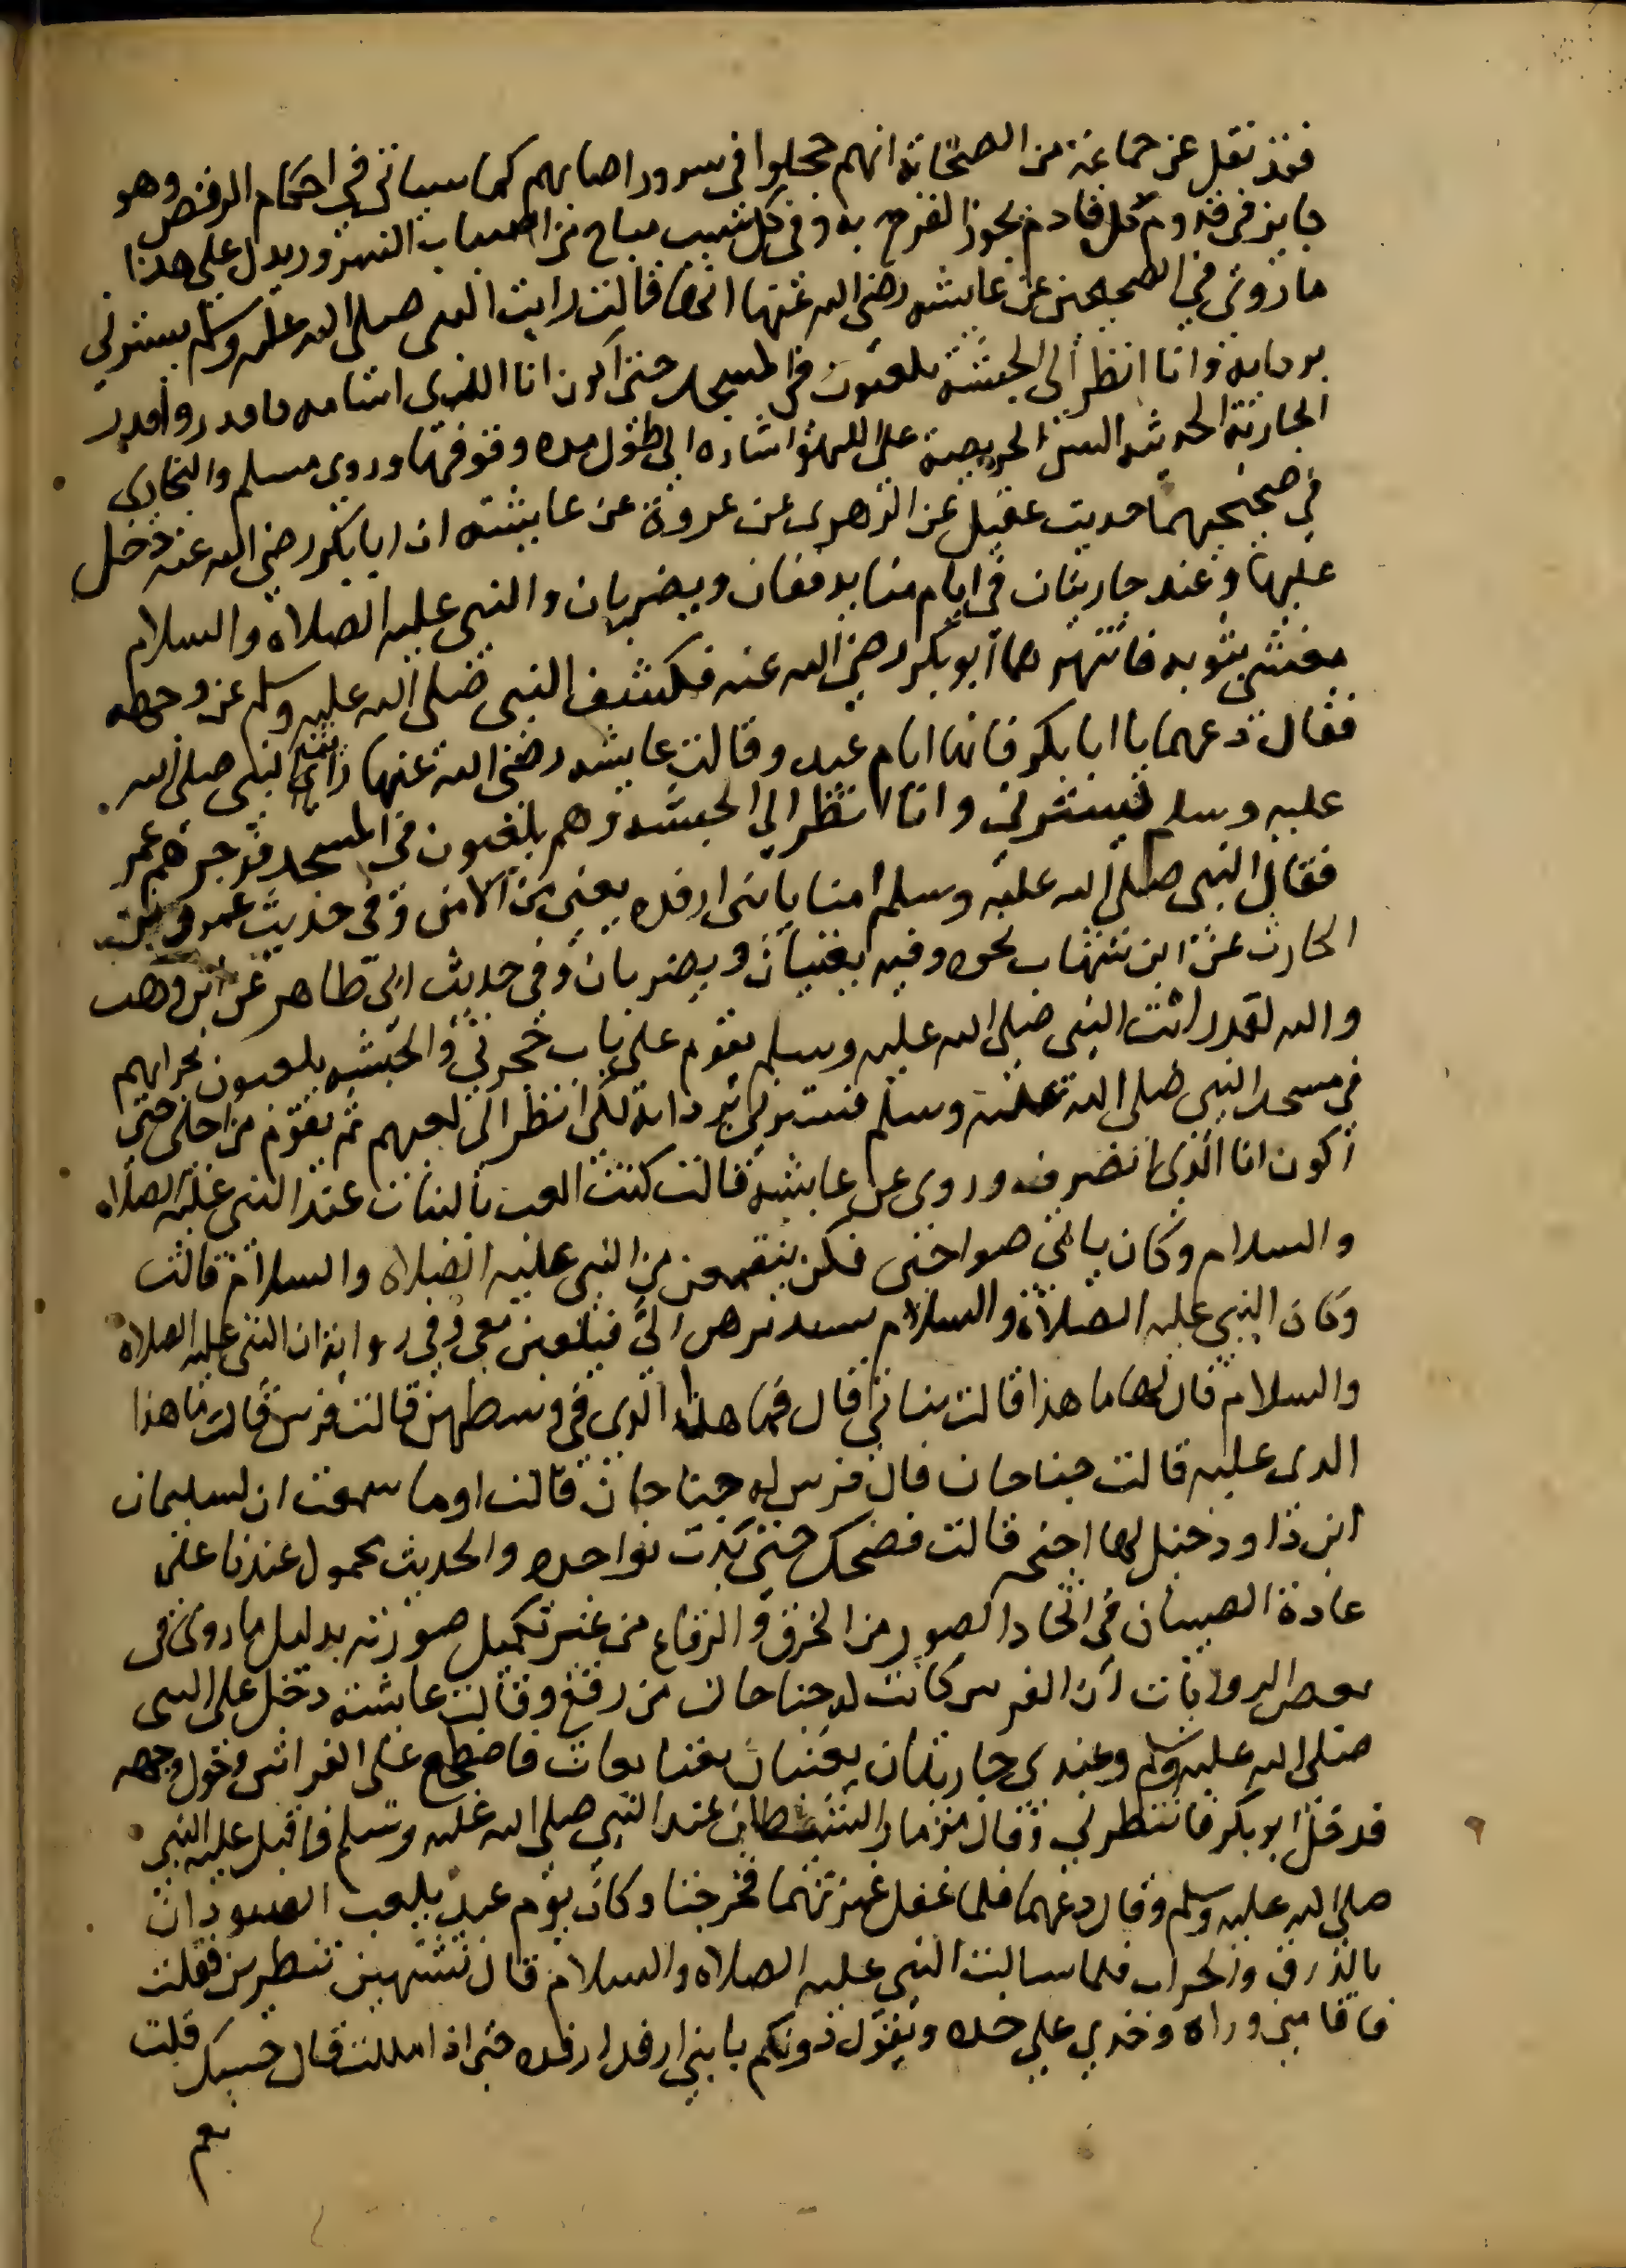 فقد نقل عن جماعة من الصحابة انهم حجلوا فى سرور اصابهم كما سياتى فى احكام الرقص وهو
جايز فى قدوم كل قادم يجوز الفرح به وفى كل سبب مباح من اسباب السرور ويدل على هذا
ما روى فى الصحيحين عن عايشه رضى الله عنها انها قالت رايت النبى صلى الله عليه وسلم يسترنى
بردايه وانا انظر الى الحبشه يلعبون فى المسجد حتى اكون انا الذى اسامه فاقدروا قدر
الجارية الحديثه السن الحريصة على اللهو اشاره الى طول مده وقوفها وروى مسلم والبخارى
فى صحيحيهما حديث عقيل عن الزهرى عن عروة عن عايشه ان ابا بكر رضى الله عنه دخل
عليها وعند جاريتان فى ايام منا يدففان ويضربان والنبى عليه الصلاة والسلام
متغشى بثوبه فانتهرهما ابو بكر رضى الله عنه فكشف النبى صلى الله عليه وسلم عن وجهه
فقال دعهما يا ابا بكر فانها ايام عيد وقالت عايشه رضى الله عنها رايت النبى صلى الله
عليه وسلم يسترنى وانا انظر الى الحبشه وهم يلعبون فى المسجد فزجرهم عمر
فقال النبى صلى الله عليه وسلم امنا يا بنى ارفده يعنى من الامن وفى حديث عمرو بن
الحارث عن ابن شهاب نحوه وفيه يغنيان ويضربان وفى حديث ابى طاهر عن ابن وهب
والله لقد رايت النبى صلى الله عليه وسلم يقوم على باب حجرتى والحبشه يلعبون بحرابهم
فى مسجد النبى صلى الله عليه وسلم يسترنى بردايه لكى انظر الى لعبهم ثم يقوم من اجلى حتى
اكون انا الذى انصرف وروى عن عايشه قالت كنت العب بالبنات عند النبى عليه الصلاه
والسلام وكان ياتى صواحبى فكن ينقمعن من النبى عليه الصلاه والسلام قالت
وكان النبى عليه الصلاة والسلام يسربهن الى فيلعبن معى وفى رواية ان النبى عليه الصلاه
والسلام قال لها ما هذا قالت بناتى قال فما هذا الذى فى وسطهن قالت فرس قال ما هذا
الذى عليه قالت جناحان قال فرس له جناحان قالت اوما سمعت ان لسليمان
ابن داود خيل لها اجنحه قالت فضحك حتى بدت نواجده والحديث محمول عندنا على
عادة الصبيان فى اتخاد الصور من الخرق والرقاع من غير تكميل صورته بدليل ما روى فى
بعض الروايات ان الفرس كانت له جناحان من رقع وقالت عايشة دخل على النبى
صلى الله عليه وسلم وعندى جاريتان يغنيان بغنا بعاث فاضطجع على الفراش وحول وجهه
فدخل ابو بكر فانتهرنى وقال مزمار الشيطان عند النبى صلى الله عليه وسلم فاقبل عليه النبى
صلى الله عليه وسلم وقال دعهما فلما غفل غمزتهما فخرجتا وكان يوم عيد يلعب السودان
بالدرق والحراب فلما سالت النبى عليه الصلاه والسلام قال تشتهين تنظرين فقلت
فاقامنى وراه وخدى على خده ويقول دونكم يا بنى ارفدارفده حتى اذا مللت قال حسبك قلت
نعم